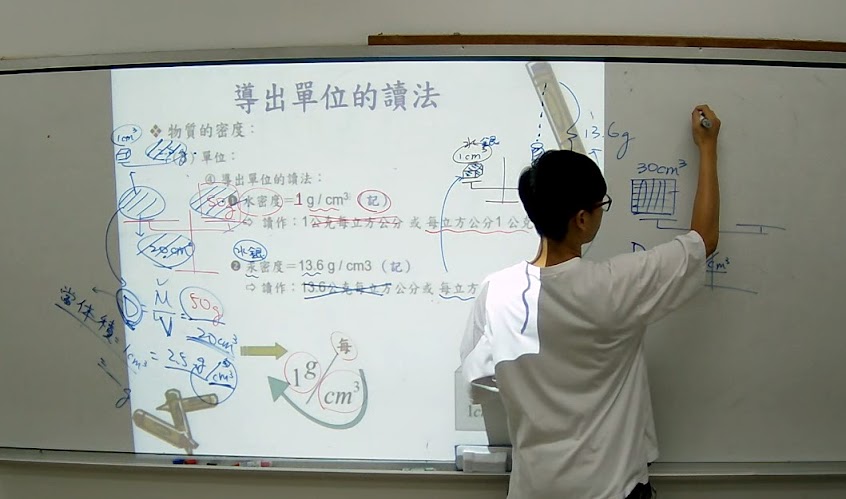 導出單位的讀法
❖ 物質的密度：
單位：
④ 導出單位的讀法：
❶ 水密度＝1 g / cm³（記）
⇨ 讀作：1公克每立方公分 或 每立方公分1 公克
水銀
❷ 汞密度＝13.6 g / cm3（記）
⇨ 讀作：13.6公克每立方公分 或 每立方
每
1g/cm³
1cm³
50g
20cm³
D = M/V = 50g
20cm³
= 2.5 g/cm³
當体積＝
1cm³
g
水銀
1cm³
13.6g
30cm³
D
cm³